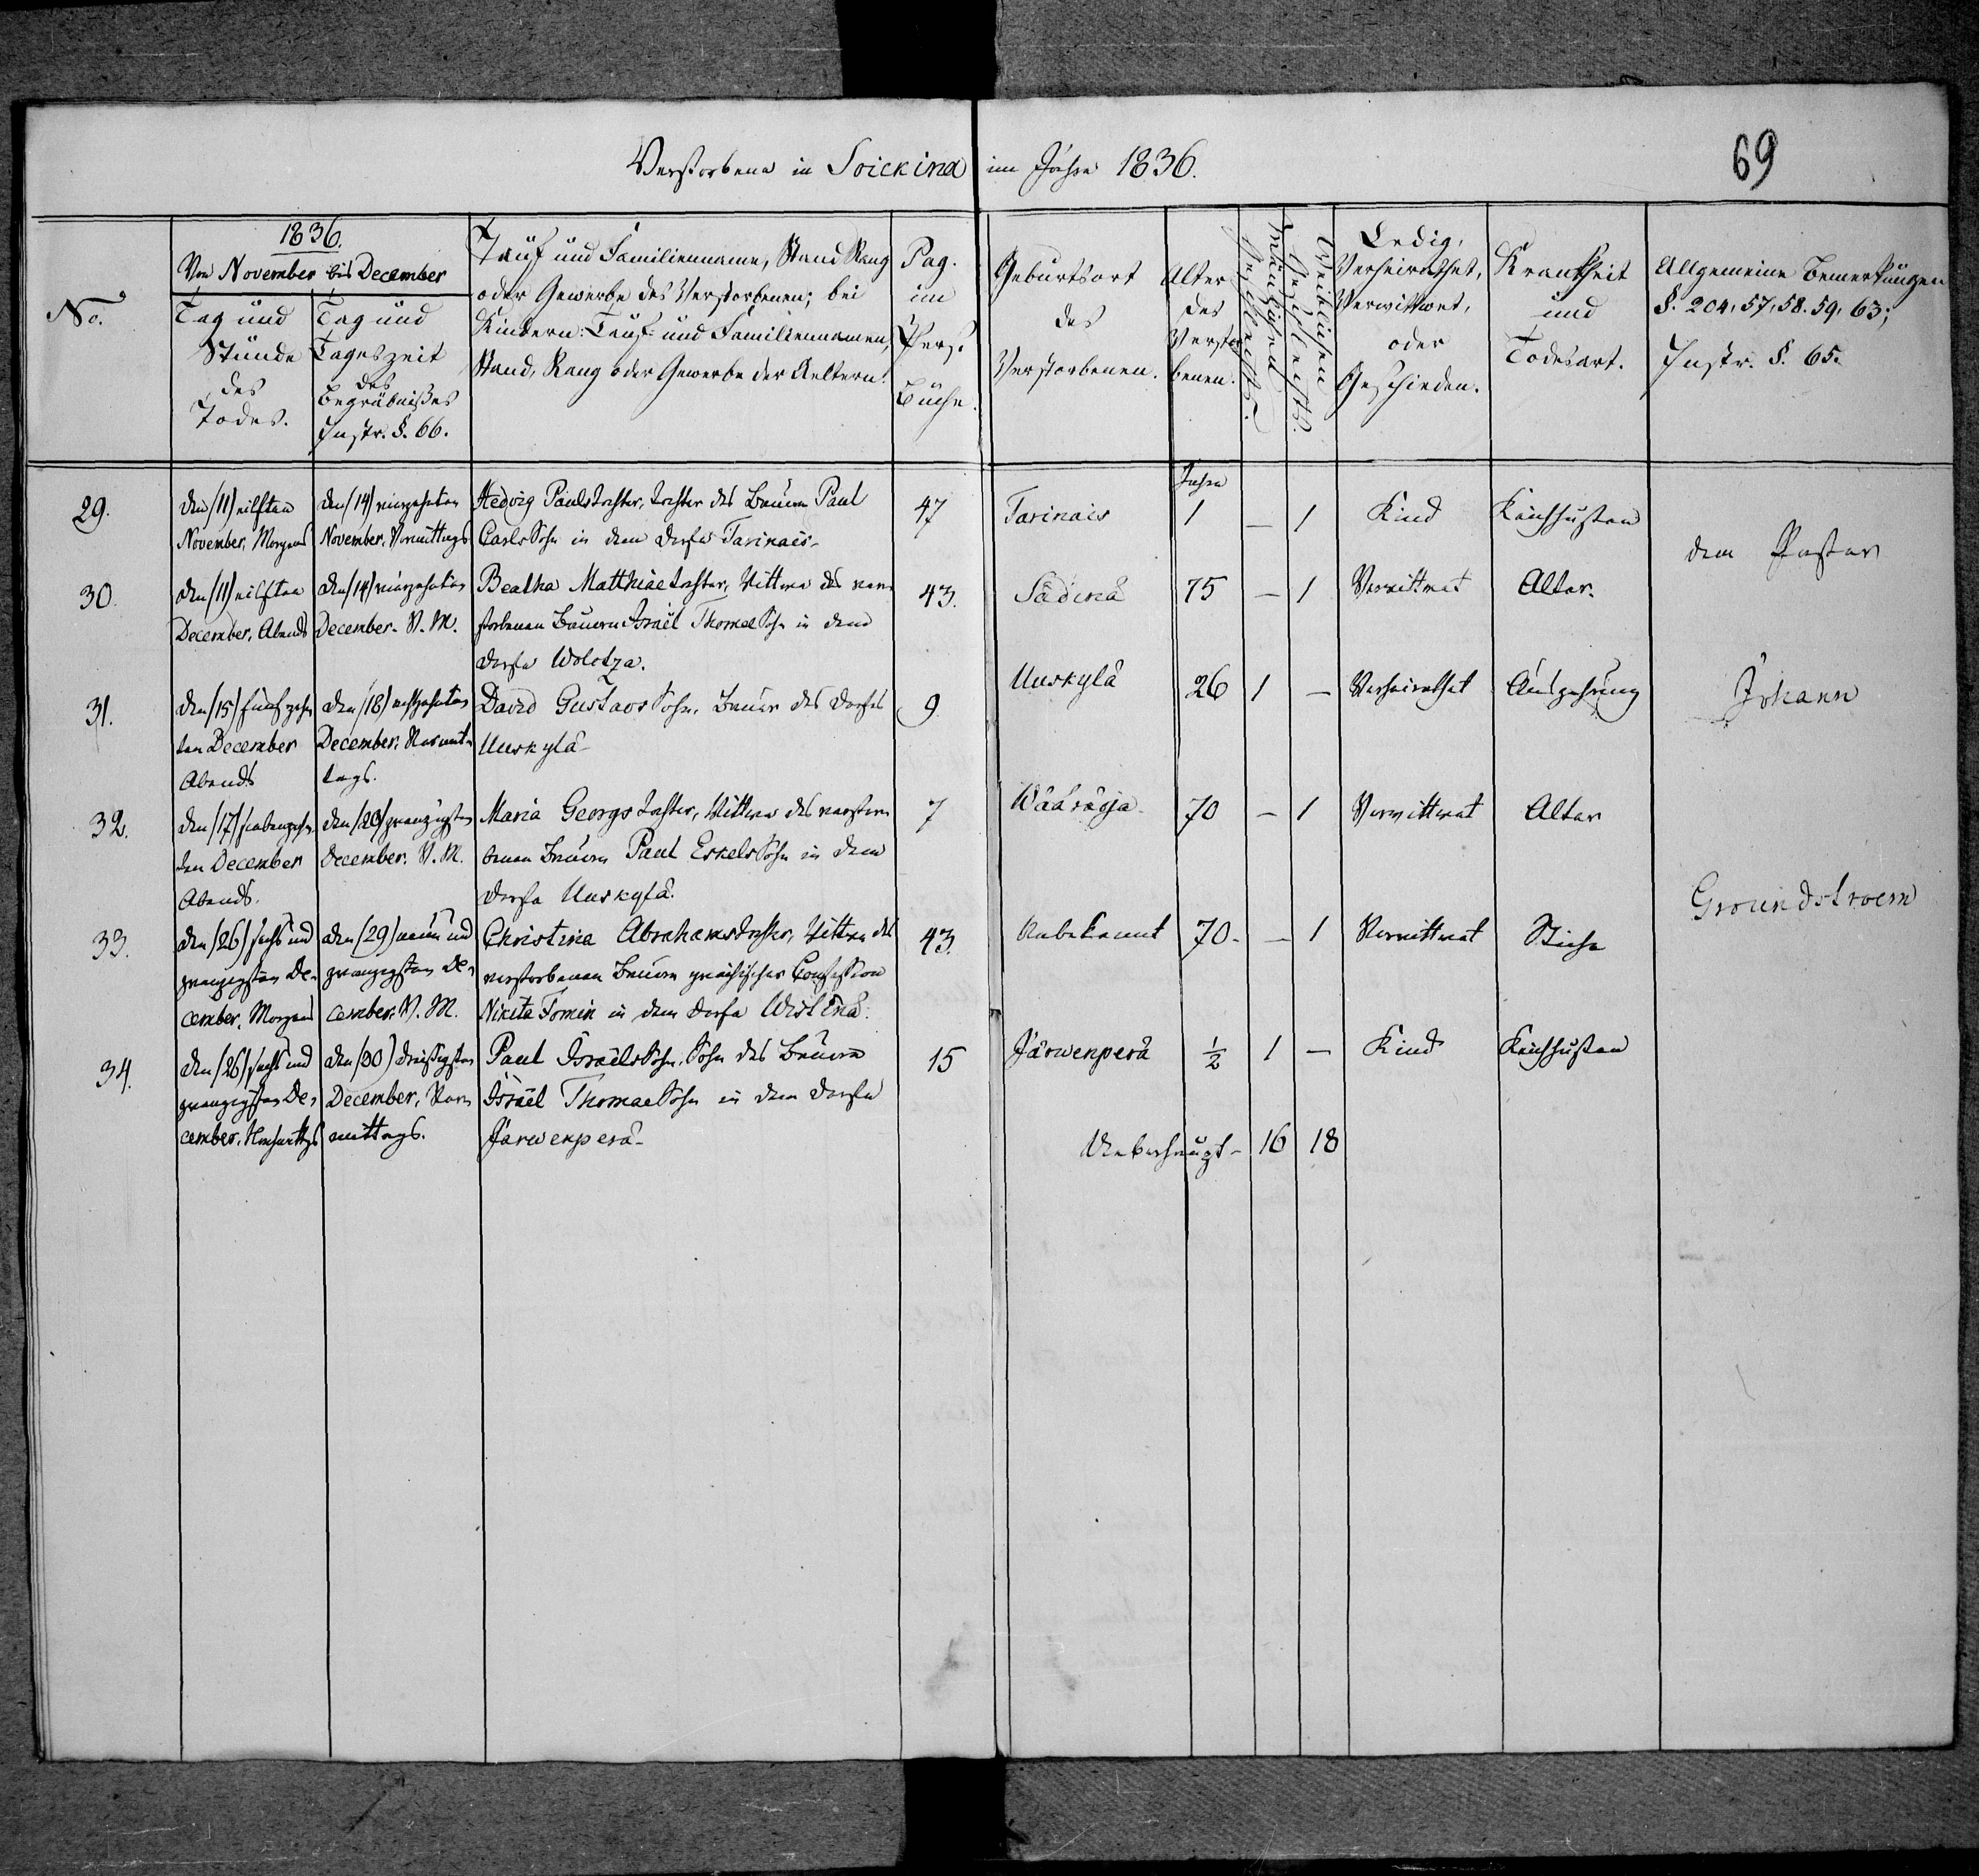 Verstorbene in Soickina im Jahre 1836.
69
No.
1836.
Von November bis December
Tag und Stunde des Todes.
Tag und Tageszeit des Begräbnißes Instr. §. 66.
Tauf und Familienname, Stand Rang
oder Gewerbe des Verstorbenen; bei
Kindern: Tauf- und Familiennamen,
Stand, Rang oder Gewerbe der Aeltern.
Pag. im Pers. Buche.
Geburtsort des Verstorbenen.
Alter des Verstorbenen.
Männlichen Geschlechts.
Weiblichen Geschlechts.
Ledig, Verheirathet, Verwittwet, oder Geschieden.
Krankheit und Todesart.
Allgemeine Bemerkungen
§. 204, 57, 58. 59, 63;
Instr. §. 65.
29.
den (11) eilften
November, Morgens
den (14) vierzehnten
November, Vormittags
Hedvig Paulstochter, Tochter des Bauern Paul
Carls Sohn in dem Dorfe Tarinais-
47
Tarinais
Jahre
1 — 1
Kind
Keichhusten
30.
den (11) eilften
December, Abends
den (14) vierzehnten
December. V. M.
Beatha Matthiaetochter, Wittwe des ver-
storbenen Bauern Israël Thomae Sohn in dem
Dorfe Wolotza.
43.
Sädinä
75 — 1
Verwittwet
Alter.
31.
den (15) fünfzehn-
ten December
Abends
den (18) achtzehnten
December, Vormit-
tags.
David Gustavs Sohn, Bauer des Dorfes
Uuskylä-
9
Uuskylä
26 1 —
Verheirathet
Auszehrung
32.
den (17) siebenzehn-
ten December
Abends.
den (20) zwanzigsten
December. V. M.
Maria Georgs Tochter, Wittwe des verstor-
benen Bauern Paul Eskels Sohn in dem
Dorfe Uuskylä.
7
Wääräoja
70 — 1
Verwittwet
Alter
33.
den (26) sechs und
zwanzigsten De-
cember, Morgens
den (29) neun und
zwanzigsten De-
cember. V. M.
Christina Abrahamstochter, Wittwe des
verstorbenen Bauern griechischer Confession
Nikita Fomin in dem Dorfe Wistinä.
43.
Unbekannt
70. — 1
Verwittwet
Stiche
34.
den (26) sechs und
zwanzigsten De-
cember, Nachmittags
den (30) dreißigsten
December, Vor-
mittags.
Paul Israëls Sohn, Sohn des Bauern
Israël Thomae Sohn in dem Dorfe
Järwenperä-
15
Järwenperä
½ 1 —
Kind
Keichhusten
Ueberhaupt- 16 18
dem Pastor
Johann
Groundstroem